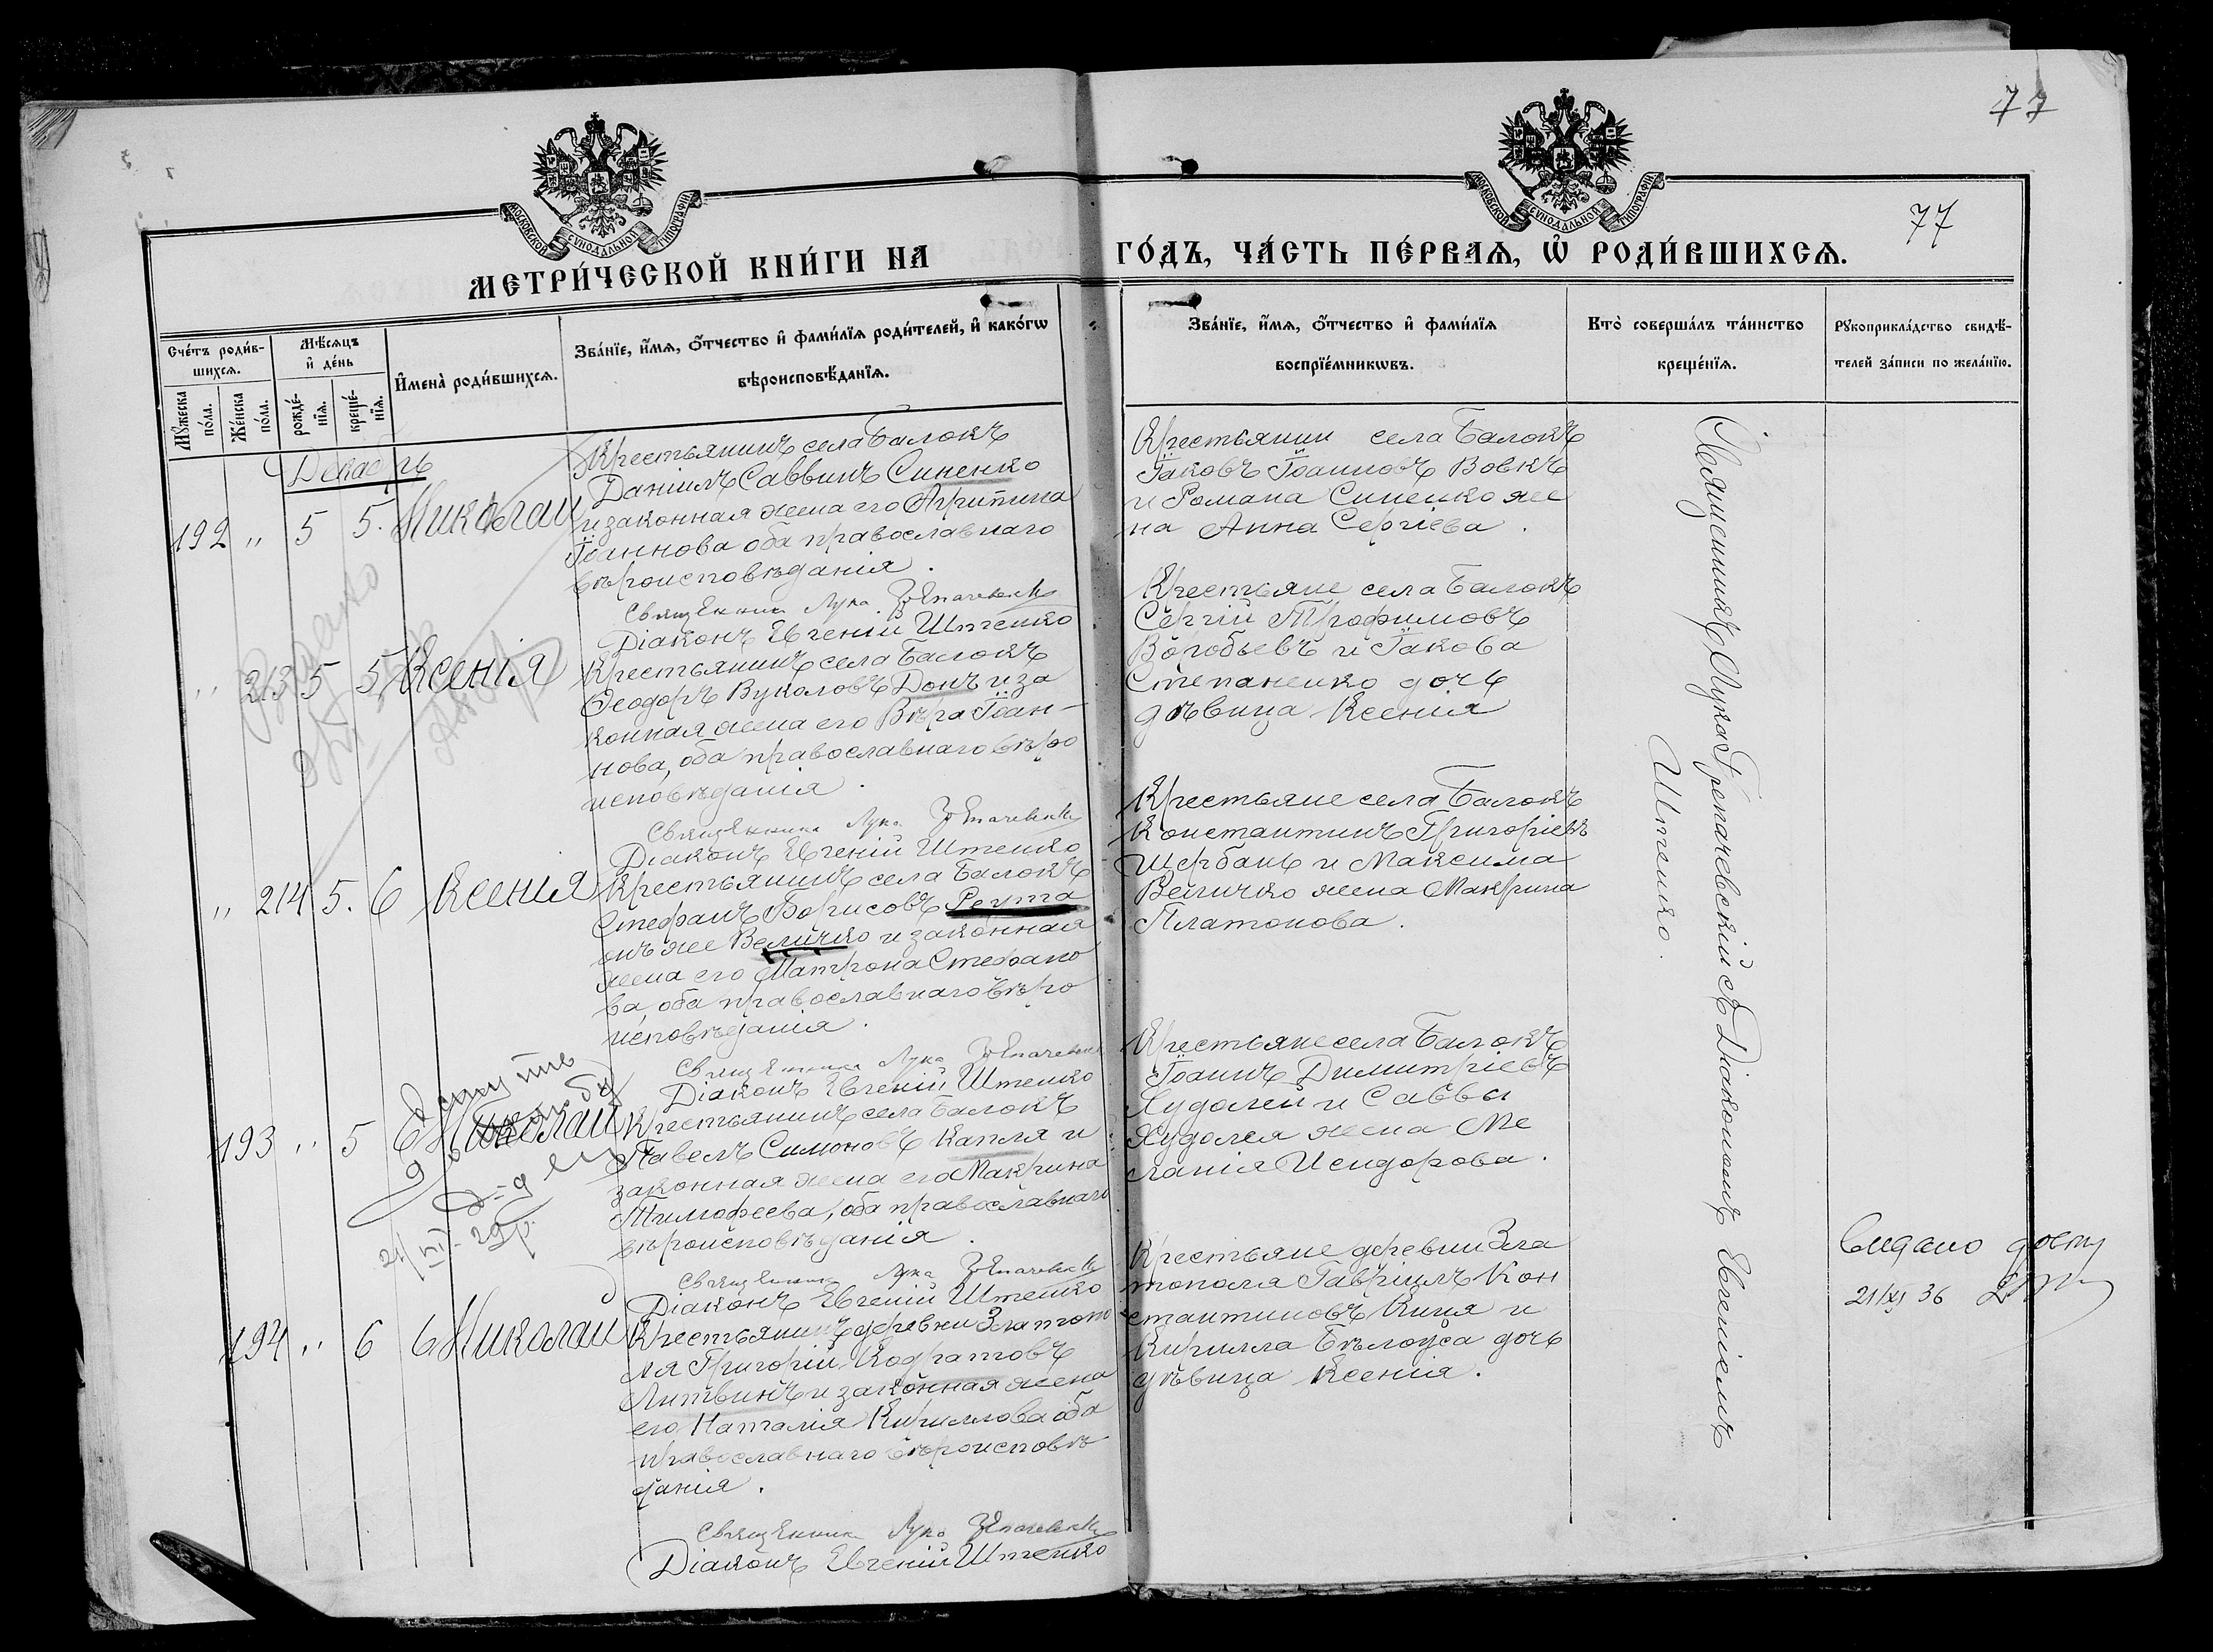 77
77
МОСКОВСКОЙ СѴНОДАЛЬНОЙ ТИПОГРАФІИ
МОСКОВСКОЙ СѴНОДАЛЬНОЙ ТИПОГРАФІИ
МЕТРИ́ЧЕСКОЙ КНИ́ГИ НА
ГО́ДЪ, ЧА́СТЬ ПЕ́РВАѦ, Ѡ҆ РОДИ́ВШИХСѦ.
Сче́тъ роди́в-
шихсѧ.
Мꙋ́жеска по́ла.
Же́нска по́ла.
Мѣ́сѧцъ
и҆ де́нь
рожде́-
нїѧ.
креще́-
нїѧ.
И҆мена̀ роди́вшихсѧ.
Зва́нїе, и҆́мѧ, ѻ҆́тчество и҆ фами́лїѧ роди́телей, и҆ како́гѡ
вѣроисповѣ́данїѧ.
Зва́нїе, и҆́мѧ, ѻ҆́тчество и҆ фами́лїѧ
воспрїе́мникѡвъ.
Кто̀ соверша́лъ та́инство
креще́нїѧ.
Рꙋкоприкла́дство свидѣ́-
телей за́писи по жела́нїю.
Декабрь
192 " 5 5. Николай
Крестьянинъ села Балокъ
Даніилъ Саввинъ Синенко
и законная жена его Агрипина
Іоаннова оба православнаго
вѣроисповѣданія.
Священникъ Лука
Діаконъ Евгеній Штепко
Крестьянин села Балокъ
Іаковъ Іоанновъ Вовкъ
и Романа Синенко же
на Анна Сергіева.
" 213 5 5 Ксенія
Крестьянинъ села Балокъ
Ѳеодоръ Вуколовъ Донъ и за
конная жена его Вѣра Іоан-
нова, оба православнаго вѣро
исповѣданія.
Священникъ Лука
Діаконъ Евгеній Штепко
Крестьяне села Балокъ
Сергій Трофимовъ
Воробьевъ и Іакова
Степаненко дочь
дѣвица Ксенія
" 214 5. 6 Ксенія
Крестьянинъ села Балокъ
Стефанъ Борисовъ Реута
онъ же Величко и законная
жена его Матрона Стефано
ва, оба православнаго вѣро
исповѣданія.
Священникъ Лука
Діаконъ Евгеній Штепко
Крестьяне села Балокъ
Константинъ Григоріевъ
Щербань и Максима
Величко жена Макрина
Платонова.
193 " 5 6 Николай
Крестьянинъ села Балокъ
Павелъ Симоновъ Капля и
законная жена его Макрина
Тимофеева, оба православнаго
вѣроисповѣданія.
Священникъ Лука
Діаконъ Евгеній Штепко
Крестьяне села Балокъ
Іоаннъ Димитріевъ
Худолей и Саввы
Худолея жена Ме
ланія Исидорова.
194 " 6 6 Николай
Крестьянинъ деревни Златопо
ля Григорій Кодратовъ
Литвинъ и законная жена
его Наталія Кириллова оба
православнаго вѣроисповѣ
данія.
Священникъ Лука
Діаконъ Евгеній Штепко
Крестьяне деревни Зла
тополя Гавріилъ Кон
стантиновъ Киця и
Кирилла Бѣлоуса дочь
дѣвица Ксенія.
Священникъ Лука Грепачевскій съ Діакономъ Евгеніемъ
Штепко.
Видано
21/XI 36